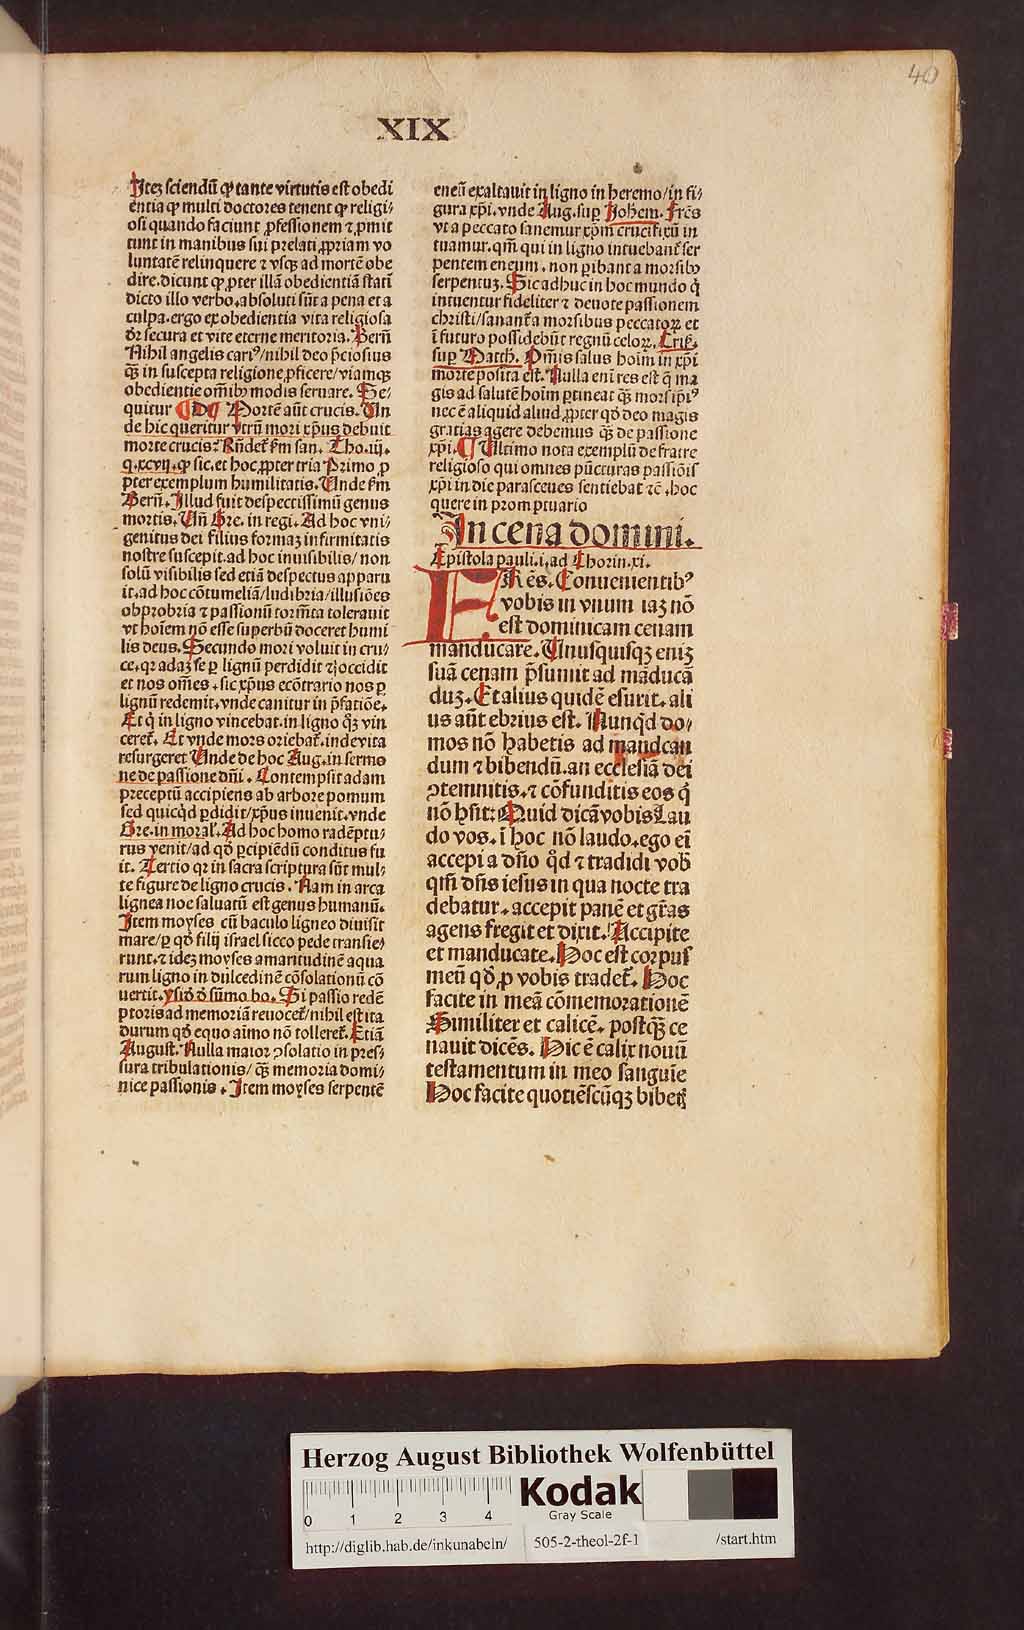 40
XIX
Itez sciendū ꝙ tante virtutis est obedi
entia ꝙ multi doctores tenent ꝙ religi⸗
osi quando faciunt ꝓfessionem ⁊ ꝓmit
tunt in manibus sui prelati ꝓpriam vo
luntatē relinquere ⁊ vsqꝫ ad mortē obe
dire. dicunt ꝙ ꝓpter illā obedientiā stati
dicto illo verbo. absoluti sūt a pena et a
culpa. ergo ex obedientia vita religiosa
dr̄ secura et vite eterne meritoria. Bern̄
Nihil angelis cariꝰ/nihil deo p̄ciosius
qꝫ̄ in suscepta religione ꝓficere/viamqꝫ
obedientie om̄ibꝰ modis seruare. Se⸗
quitur ¶ Dc̄ Mortē aūt crucis. Un
de hic queritur vtrū mori xp̄us debuit
morte crucis? Rn̄det̄ s̄m san. Tho. iij.
q. xcvij. ꝙ sic. et hoc ꝓpter tria Primo ꝓ
pter exemplum humilitatis. Unde s̄m
Bern̄. Illud fuit despectissimū genus
mortis. Un̄ Gre. in regi. Ad hoc vni⸗
genitus dei filius formaꝫ infirmitatis
nostre suscepit. ad hoc inuisibilis/non
solū visibilis sed etiā despectus apparu
it. ad hoc cōtumeliā/ludibria/illusiōes
obprobria ⁊ passionū torm̄ta tolerauit
vt hoīem nō esse superbū doceret humi
lis deus. Secundo mori voluit in cru⸗
ce. qꝛ adaꝫ se ꝑ lignū perdidit ⁊ occidit
et nos om̄es. sic xp̄us ecōtrario nos ꝑ
lignū redemit. vnde canitur in p̄fatiōe.
Et q̇ in ligno vincebat. in ligno qꝫ vin
ceret̄. Et vnde mors oriebat̄. inde vita
resurgeret Unde de hoc Aug. in sermo
ne de passione dn̄i. Contempsit adam
preceptū accipiens ab arbore pomum
sed quicqd ꝑdidit/xp̄us inuenit. vnde
Gre. in moral'. Ad hoc homo radēptu⸗
rus venit/ad qd̄ ꝑcipiēdū conditus fu
it. Tertio qꝛ in sacra scriptura sūt mul⸗
te figure de ligno crucis. Nam in arca
lignea noe saluatū est genus humanū.
Item moyses cū baculo ligneo diuisit
mare/ꝑ qd̄ filij israel sicco pede transie⸗
runt. ⁊ idez moyses amaritudinē aqua
rum ligno in dulcedinē cōsolationū cō
uertit. ysid̄ d̄ sūmo bo. Si passio redē
ptoris ad memoriā reuocet̄/nihil est ita
durum qd̄ equo aīmo nō tolleret̄. Etiā
August. Nulla maior ꝯsolatio in pres⸗
sura tribulationis/qꝫ̄ memoria domi⸗
nice passionis. Item moyses serpentē
eneū exaltauit in ligno in heremo/in fi⸗
gura xp̄i. vnde Aug. sup̄ Johem. Fr̄es
vt a peccato sanemur xp̄m crucifixū in
tuamur. qm̄ qui in ligno intuebant̄ ser
pentem eneum. non ꝑibant a morsibꝰ
serpentuꝫ. Sic adhuc in hoc mundo q̇
intuentur fideliter ⁊ deuote passionem
christi/sanant̄ a morsibus peccatoꝝ et
ī futuro possidebūt regnū celoꝝ. Criss.
sup̄ Matth. Om̄is salus hoīm in xp̄i
morte posita est. Nulla enī res est q̇ ma
gis ad salutē hoīm ꝑtineat qꝫ̄ mors ip̄iꝰ
nec ē aliquid aliud ꝓpter qd̄ deo magis
gratias agere debemus qꝫ̄ de passione
xp̄i. ¶ Ultimo nota exemplū de fratre
religioso qui omnes pūcturas passiōis
xp̄i in die parasceues sentiebat ⁊c̄. hoc
quere in promptuario
In cena domini.
Epistola pauli. i. ad Chorin. xi.
FRēs. Conuenientibꝰ
vobis in vnum iaꝫ nō
est dominicam cenam
manducare. Unusquisqꝫ eniꝫ
suā cenam p̄sumit ad māducā
duꝫ. Et alius quidē esurit. ali
us aūt ebrius est. Nunqd do⸗
mos nō habetis ad mandcan
dum ⁊ bibendū. an ecclesiā dei
ꝯtemnitis. ⁊ cōfunditis eos q̇
nō hn̄t? Quid dicā vobis Lau
do vos. ī hoc nō laudo. ego eī
accepi a dn̄o qd̄ ⁊ tradidi vob̄
qm̄ dn̄s iesus in qua nocte tra
debatur. accepit panē et gr̄as
agens fregit et dixit. Accipite
et manducate. Hoc est corpus
meū qd̄ ꝓ vobis tradet̄. Hoc
facite in meā cōmemorationē
Similiter et calicē. postqꝫ̄ ce
nauit dicēs. Hic ē calix nouū
testamentum in meo sanguīe
Hoc facite quotiēscūqꝫ bibetꝭ
Herzog August Bibliothek Wolfenbüttel
0 1 2 3 4
Kodak
Gray Scale
http://diglib.hab.de/inkunabeln/ 505-2-theol-2f-1 /start.htm